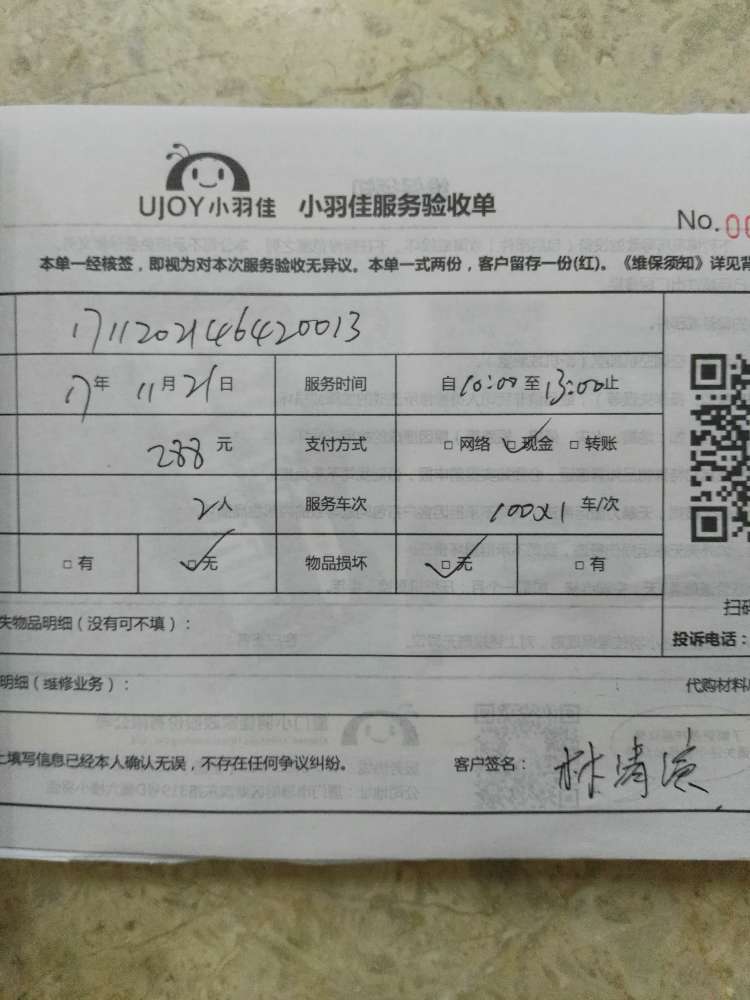 UJOY小羽佳 小羽佳服务验收单
No. 00
本单一经核签，即视为对本次服务验收无异议。本单一式两份，客户留存一份(红)。《维保须知》详见背
1711202146420013
17年 11月21日 服务时间 自10:00至13:00止
288元 支付方式 □网络 ☑现金 □转账
2人 服务车次 100×1 车/次
□有 ☑无 物品损坏 ☑无 □有
失物品明细（没有可不填）：
扫码
投诉电话：
明细（维修业务）：
代购材料
上填写信息已经本人确认无误，不存在任何争议纠纷。 客户签名： 林清